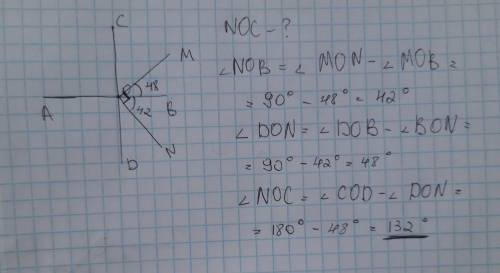 C
M
48
A
B
42
N
D
NOC - ?
∠NOB = ∠MON - ∠MOB =
= 90° - 48° = 42°
∠DON = ∠DOB - ∠BON =
= 90° - 42° = 48°
∠NOC = ∠COD - ∠DON =
= 180° - 48° = 132°